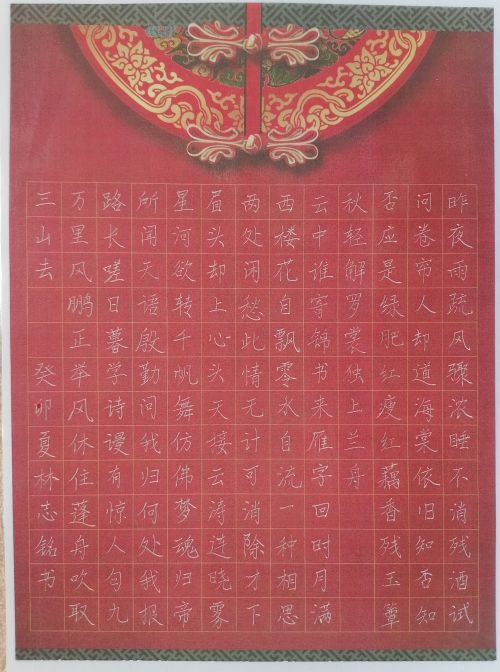 昨夜雨疏风骤浓睡不消残酒试
问卷帘人却道海棠依旧知否知
否应是绿肥红瘦红藕香残玉簟
秋轻解罗裳独上兰舟
云中谁寄锦书来雁字回时月满
西楼花自飘零水自流一种相思
两处闲愁此情无计可消除才下
眉头却上心头天接云涛连晓雾
星河欲转千帆舞仿佛梦魂归帝
所闻天语殷勤问我归何处我报
路长嗟日暮学诗谩有惊人句九
万里风鹏正举风休住蓬舟吹取
三山去 癸卯夏林志铭书